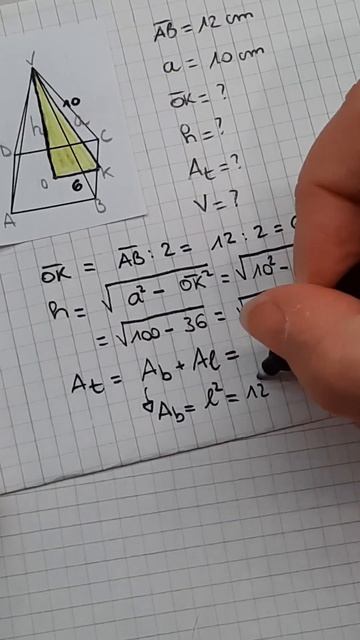 A̅B̅ = 12 cm
a = 10 cm
O̅K̅ = ?
h = ?
At = ?
V = ?
V
10
h a
D C
K
O 6
A B
O̅K̅ = A̅B̅ : 2 = 12 : 2 =
h = √a² - O̅K̅² = √10² -
= √100 - 36 = √
At = Ab + Al =
↓ Ab = l² = 12